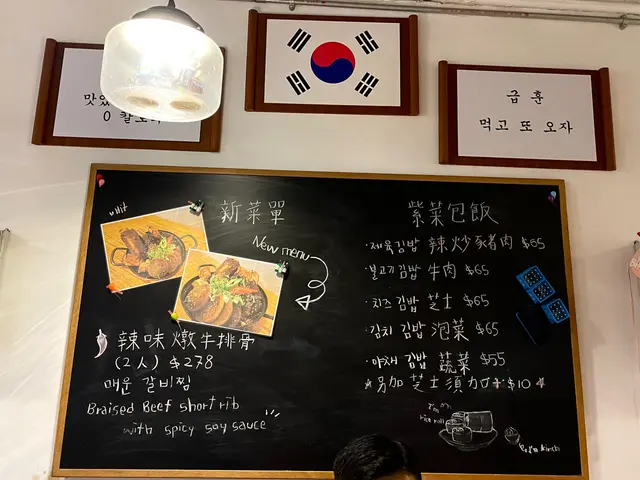 맛있
0 칼로리
급 훈
먹고 또 오자
Hit
新菜單
New menu
辣味 燉牛排骨
(2人) $278
매운 갈비찜
Braised Beef short rib
with spicy soy sauce
紫菜包飯
·제육김밥 辣炒豬肉 $65
·불고기김밥 牛肉 $65
·치즈김밥 芝士 $65
·김치 김밥 泡菜 $65
·야채 김밥 蔬菜 $55
*另加芝士須加+$10*
I'm
rice roll
I'm kimchi